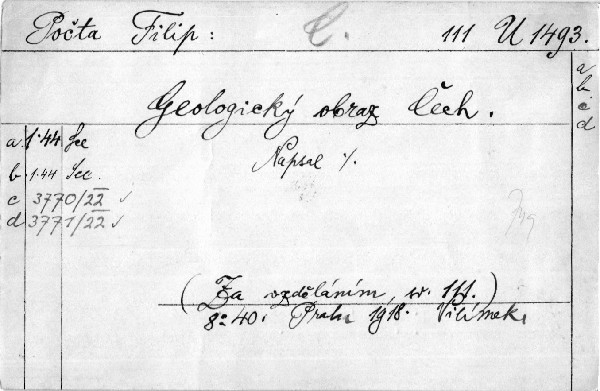 Počta Filip: C. III U 1493.
a
b
c
d
Geologický obraz Čech.
a. 1·44 Lee
Napsal ⁒.
b. 1·44 Lee.
c 3770/22 ✓
d 3771/22 ✓
(Za vzděláním, sv. 111.)
8° 40. Praha 1918. Vilímek.